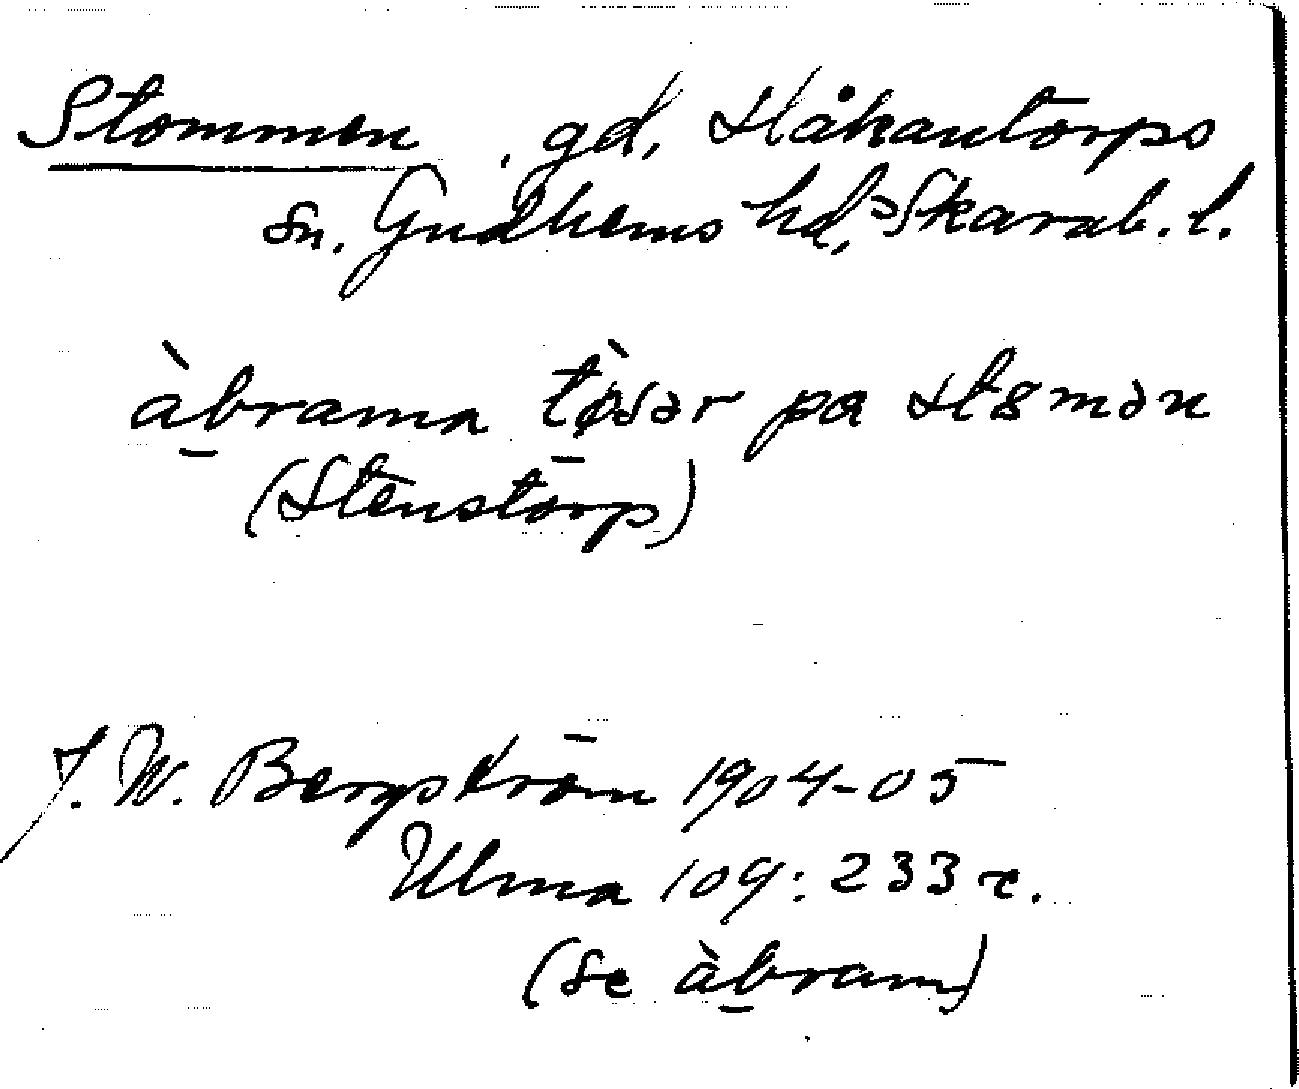 Stommen, gd, Håkantorps
sn. Gudhems hd, Skarab. l.
àbrama tø̀sər pa st8mən
(Stenstorp)
J. W. Bergström 1904-05
Ulma 109: 233 r.
(se àbram)